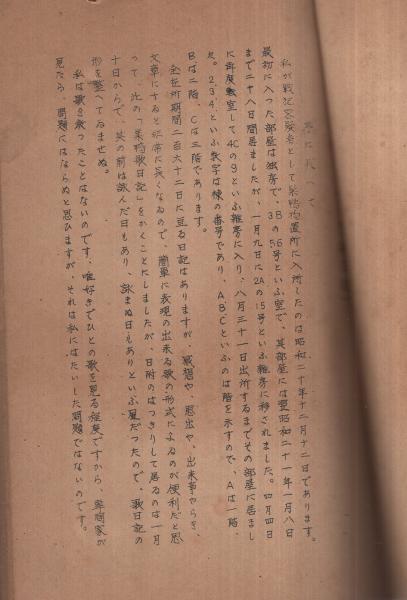 巻に代へて
私が戦犯容疑者として巣鴨拘置所に入所したのは昭和二十年十二月十二日であります。
最初に入つた部屋は独房で、3Bの56号といふ室で、其部屋には翌昭和二十一年一月八日
まで二十八日間居ましたが、一月九日に2Aの15号といふ雑房に移されました。四月四日
に再度転室して4Cの9といふ雑房に入り、八月三十一日出所するまでその部屋に居まし
た。2、3、4、といふ数字は棟の番号であり、A、B、Cといふのは階を示すので、Aは一階、
Bは二階、Cは三階であります。
全在所期間二百六十二日に亘る日記はありますが、感想や、思出や、出来事やらを、
文章にすると非常に長くなるので、簡単に表現の出来る歌の形式によるのが便利だと思
つて、此の「巣鴨歌日記」をかくことにしましたが、日附のはつきりして居るのは一月
十日からで、其の前は詠んだ日もあり、詠まぬ日もありといふ風だつたので、歌日記の
形を整へてゐませぬ。
私は歌を教つたことはないのです。唯好きでひとの歌を見る程度ですから、専門家が
見たら、問題にはならぬと思ひますが、それは私にはたいした問題ではないのです。